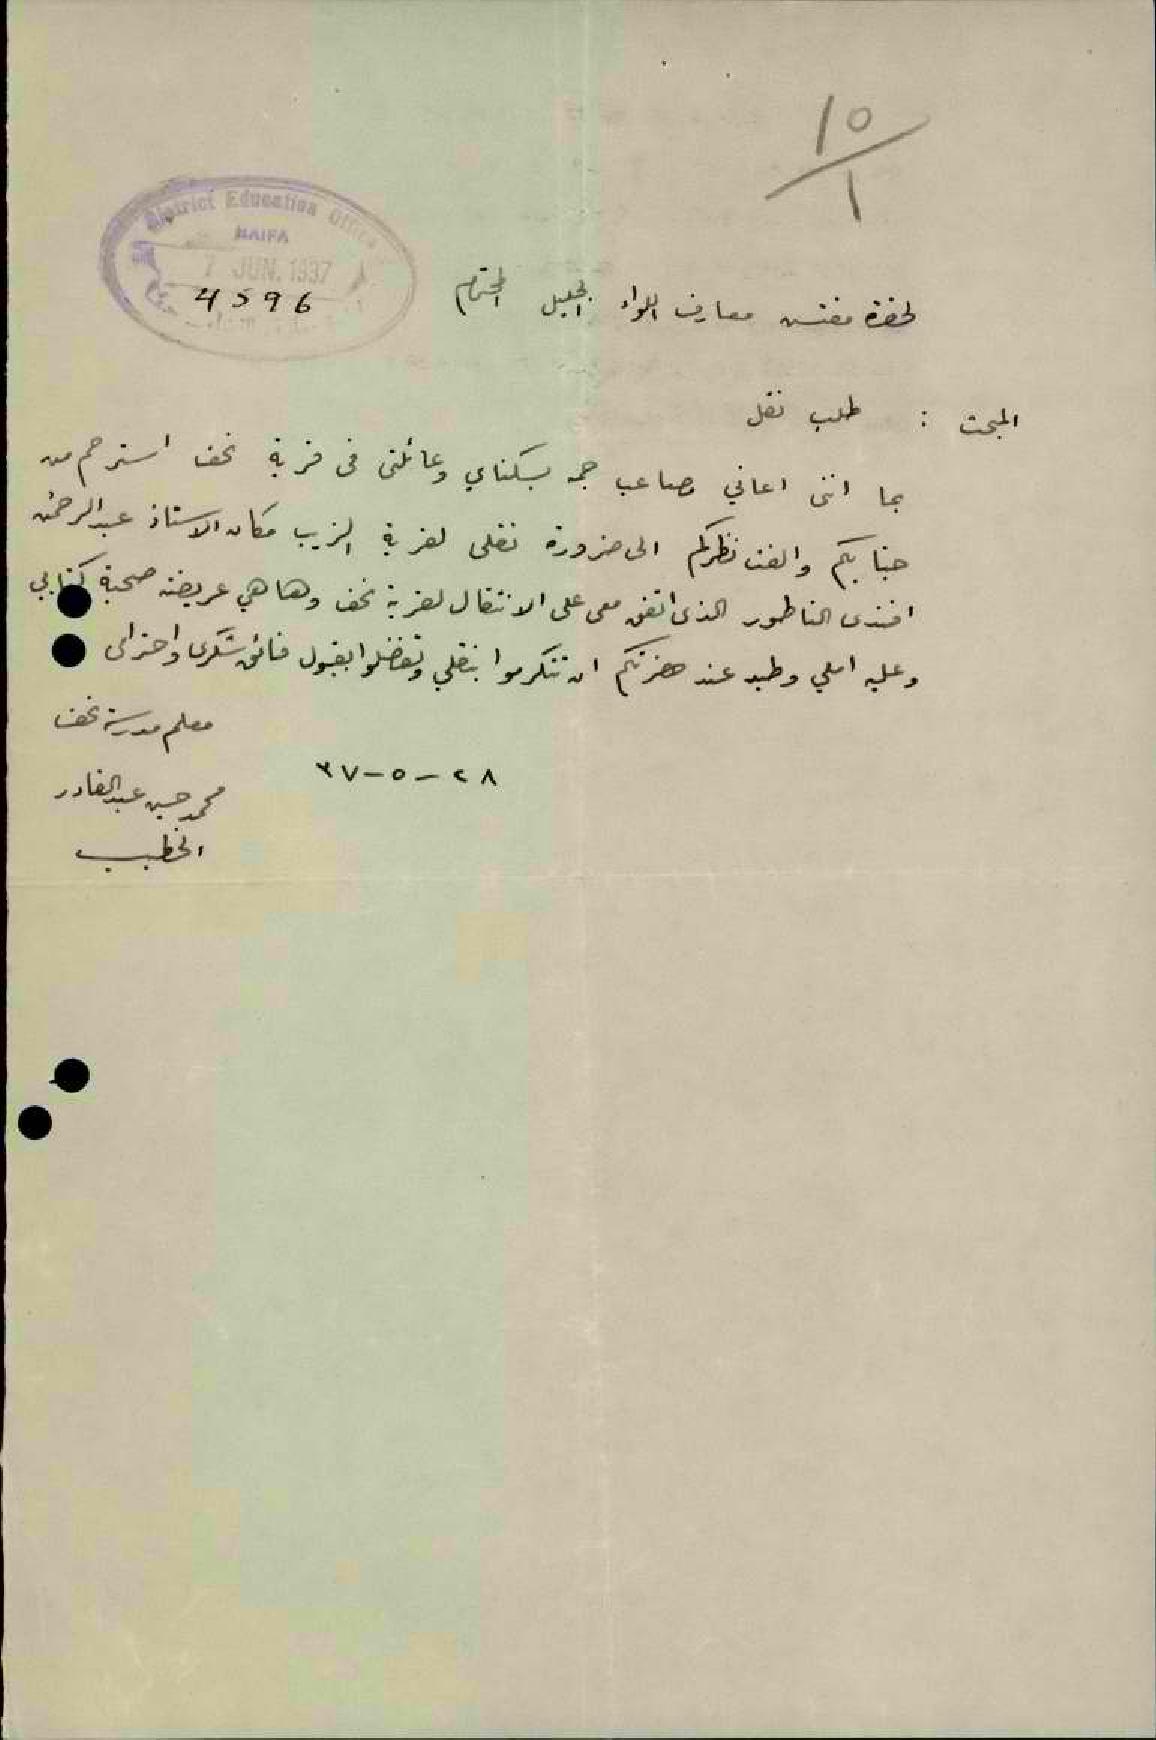 ١٥
١
District Education Office
HAIFA
7 JUN. 1937
4596
لحضرة مفتش معارف اللواء الجليل المحترم
المبحث : طلب نقل
بما انني اعاني مصاعب جمه بسكناي وعائلتي في قرية نحف استرحم من
جنابكم والفت نظركم الى ضرورة نقلي لقرية الزيب مكان الاستاذ عبد الرحمن
افندي الناطور الذي اتفق معي على الانتقال لقرية نحف وها هي عريضته صحبة كتابي
وعليه املي وطيد عند حضرتكم ان تتكرموا بنقلي وتفضلوا بقبول فائق شكري واحترامي
معلم مدرسة نحف
٢٨-٥-٣٧
محمد حسين عبد القادر
الخطيب